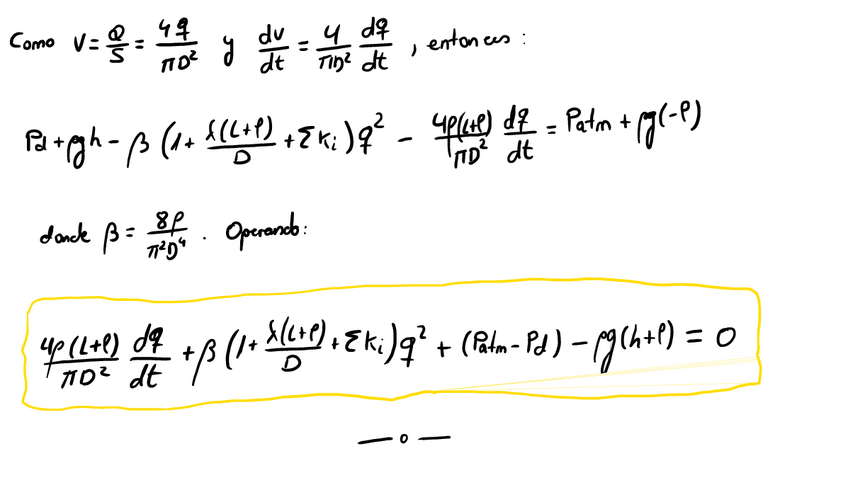 Como V = Q/S = 4q/πD² y dv/dt = 4/πD² dq/dt , entonces :
Pd + ρgh - β (1 + λ(L+l)/D + Σ Ki) q² - 4ρ(L+l)/πD² dq/dt = Patm + ρg(-l)
donde β = 8ρ/π²D⁴ . Operando:
4ρ(L+l)/πD² dq/dt + β (1 + λ(L+l)/D + Σ Ki) q² + (Patm - Pd) - ρg(h+l) = 0
— o —